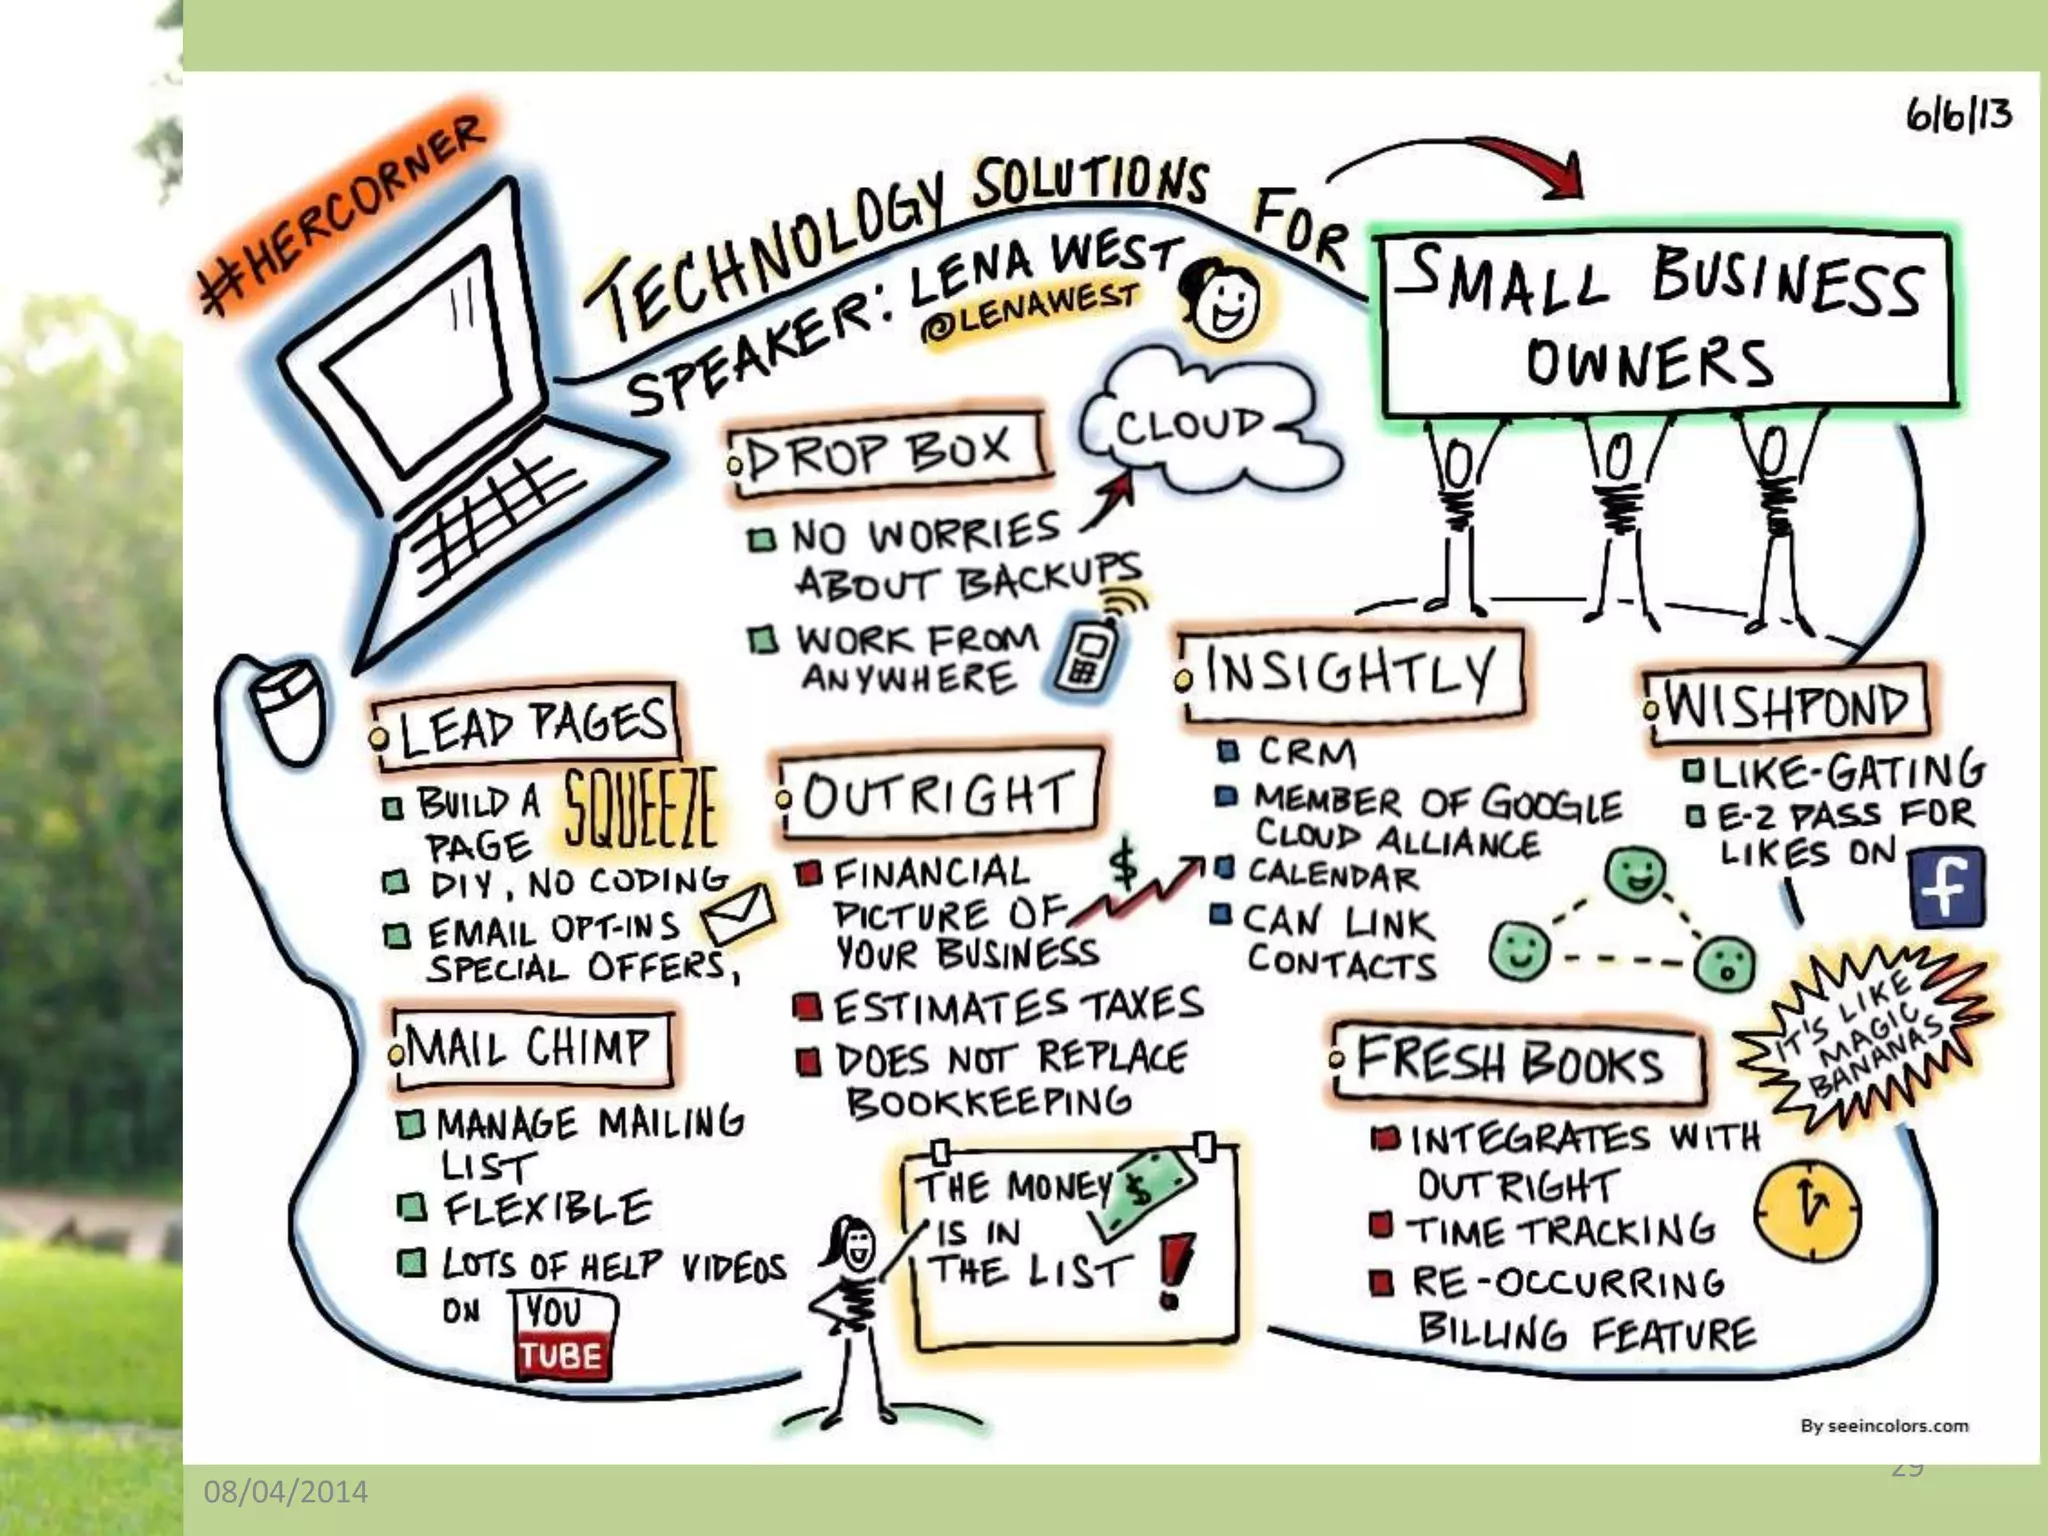 6/6/13
#HERCORNER
TECHNOLOGY SOLUTIONS FOR
SMALL BUSINESS
OWNERS
SPEAKER: LENA WEST
@LENAWEST
DROP BOX
CLOUD
NO WORRIES
ABOUT BACKUPS
WORK FROM
ANYWHERE
LEAD PAGES
BUILD A SQUEEZE
PAGE
DIY, NO CODING
EMAIL OPT-INS
SPECIAL OFFERS,
MAIL CHIMP
MANAGE MAILING
LIST
FLEXIBLE
LOTS OF HELP VIDEOS
ON YOU
TUBE
OUTRIGHT
FINANCIAL $
PICTURE OF
YOUR BUSINESS
ESTIMATES TAXES
DOES NOT REPLACE
BOOKKEEPING
THE MONEY $
IS IN
THE LIST !
INSIGHTLY
CRM
MEMBER OF GOOGLE
CLOUD ALLIANCE
CALENDAR
CAN LINK
CONTACTS
WISHPOND
LIKE-GATING
E-Z PASS FOR
LIKES ON f
IT'S LIKE
MAGIC
BANANAS
FRESH BOOKS
INTEGRATES WITH
OUTRIGHT
TIME TRACKING
RE-OCCURRING
BILLING FEATURE
By seeincolors.com
08/04/2014
29